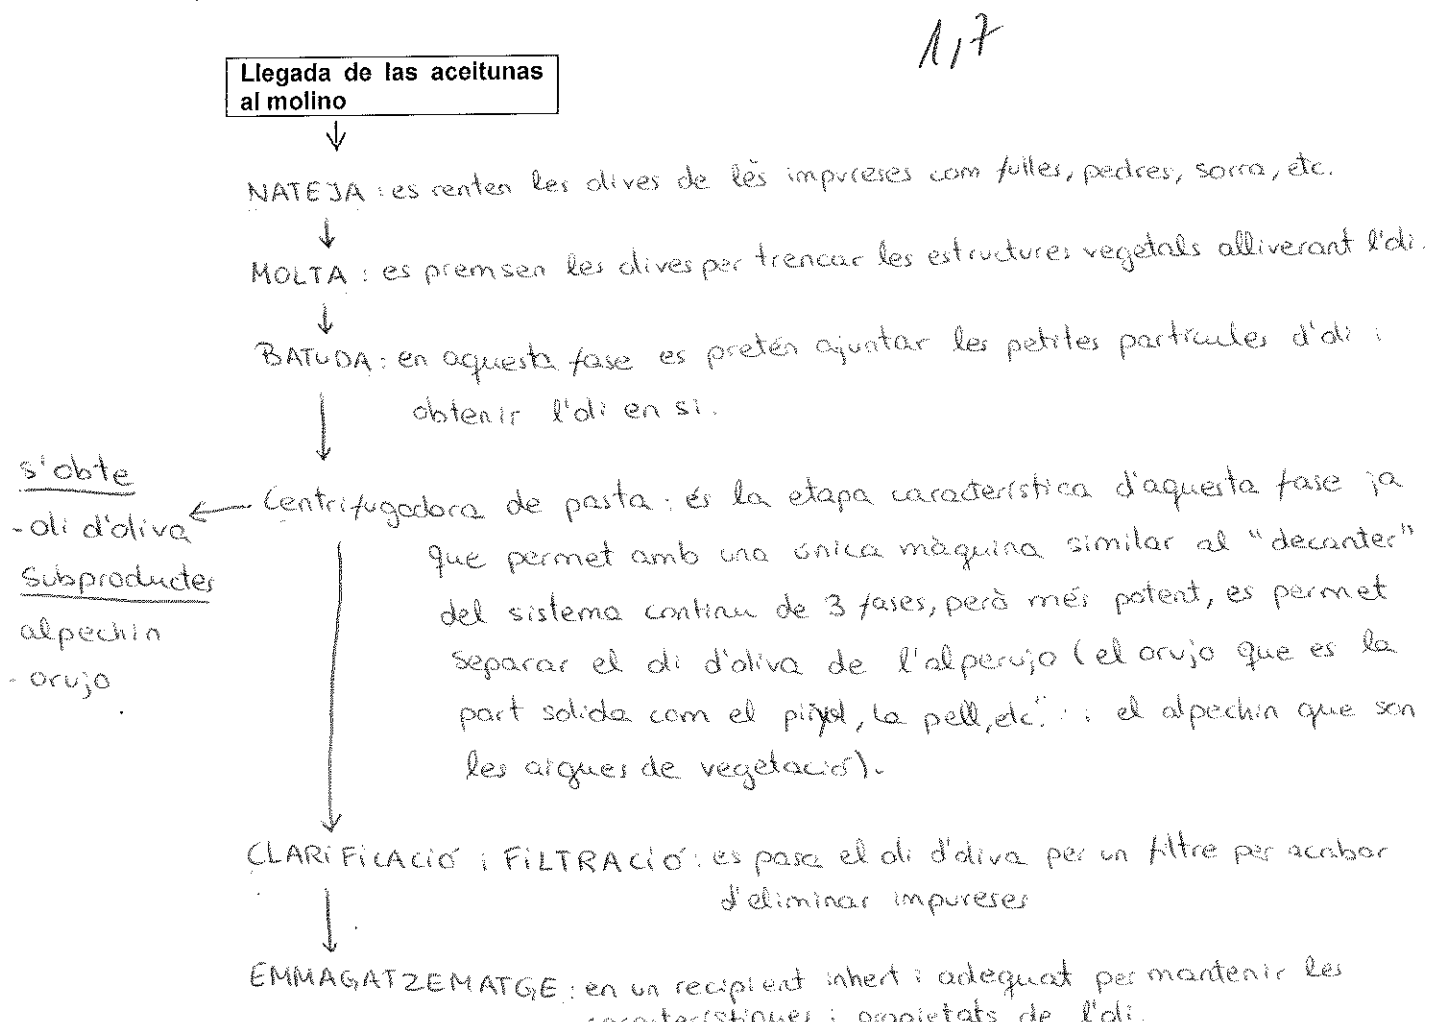 1,7
Llegada de las aceitunas
al molino
NATEJA: es renten les olives de les impureses com fulles, pedres, sorra, etc.
MOLTA: es premsen les olives per trencar les estructures vegetals alliverant l'oli.
BATUDA: en aquesta fase es pretén ajuntar les petites partícules d'oli i
obtenir l'oli en si.
s'obte
- oli d'oliva
Subproductes
alpechin
- orujo
Centrifugadora de pasta: és la etapa característica d'aquesta fase ja
que permet amb una única màquina similar al "decanter"
del sistema continu de 3 fases, però més potent, es permet
separar el oli d'oliva de l'alperujo (el orujo que es la
part solida com el pinyol, la pell, etc. i el alpechin que son
les aigues de vegetació).
CLARIFICACIÓ i FILTRACIÓ: es pasa el oli d'oliva per un filtre per acabar
d'eliminar impureses
EMMAGATZEMATGE: en un recipient inhert i adequat per mantenir les
característiques i propietats de l'oli.